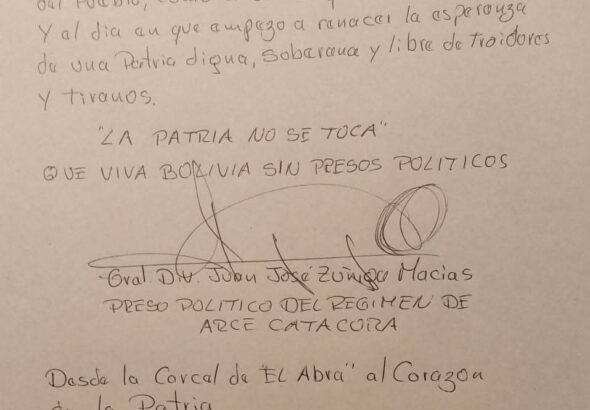 del Pueblo,
Y al dia en que empezo a renacer la esperanza
de una Patria digna, soberana y libre de traidores
y tiranos.
"LA PATRIA NO SE TOCA"
QUE VIVA BOLIVIA SIN PRESOS POLITICOS
Gral. Div. Juan José Zuñiga Macias
PRESO POLITICO DEL REGIMEN DE
ARCE CATACORA
Desde la Carcel de "EL Abra" al Corazon
de la Patria